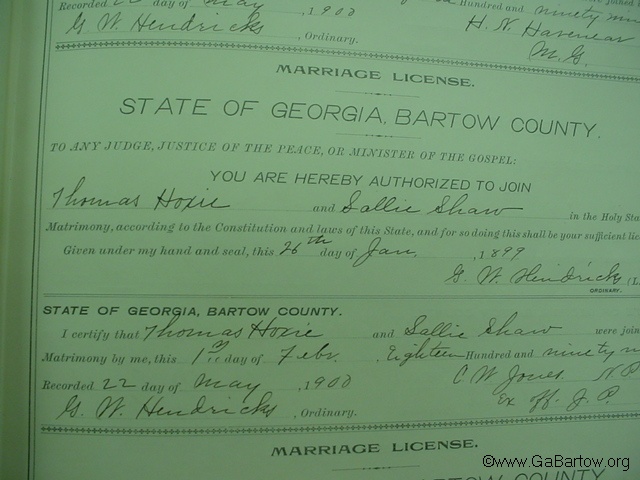 Recorded 22 day of May, 1900 Hundred and ninety
G. W. Hendricks, Ordinary. H. N.
M. G.
MARRIAGE LICENSE.
STATE OF GEORGIA, BARTOW COUNTY.
TO ANY JUDGE, JUSTICE OF THE PEACE, OR MINISTER OF THE GOSPEL:
YOU ARE HEREBY AUTHORIZED TO JOIN
Thomas Hoxie and Sallie Shaw in the Holy Sta
Matrimony, according to the Constitution and laws of this State, and for so doing this shall be your sufficient lic
Given under my hand and seal, this 26th day of Jan, 1899
G. W. Hendricks (L.
ORDINARY.
STATE OF GEORGIA, BARTOW COUNTY.
I certify that Thomas Hoxie and Sallie Shaw were join
Matrimony by me, this 1st day of Febr. Eighteen Hundred and ninety n
Recorded 22 day of May, 1900 C W Jones. N. P.
G. W. Hendricks, Ordinary. Ex off. J. P.
MARRIAGE LICENSE.
COUNTY.
©www.GaBartow.org